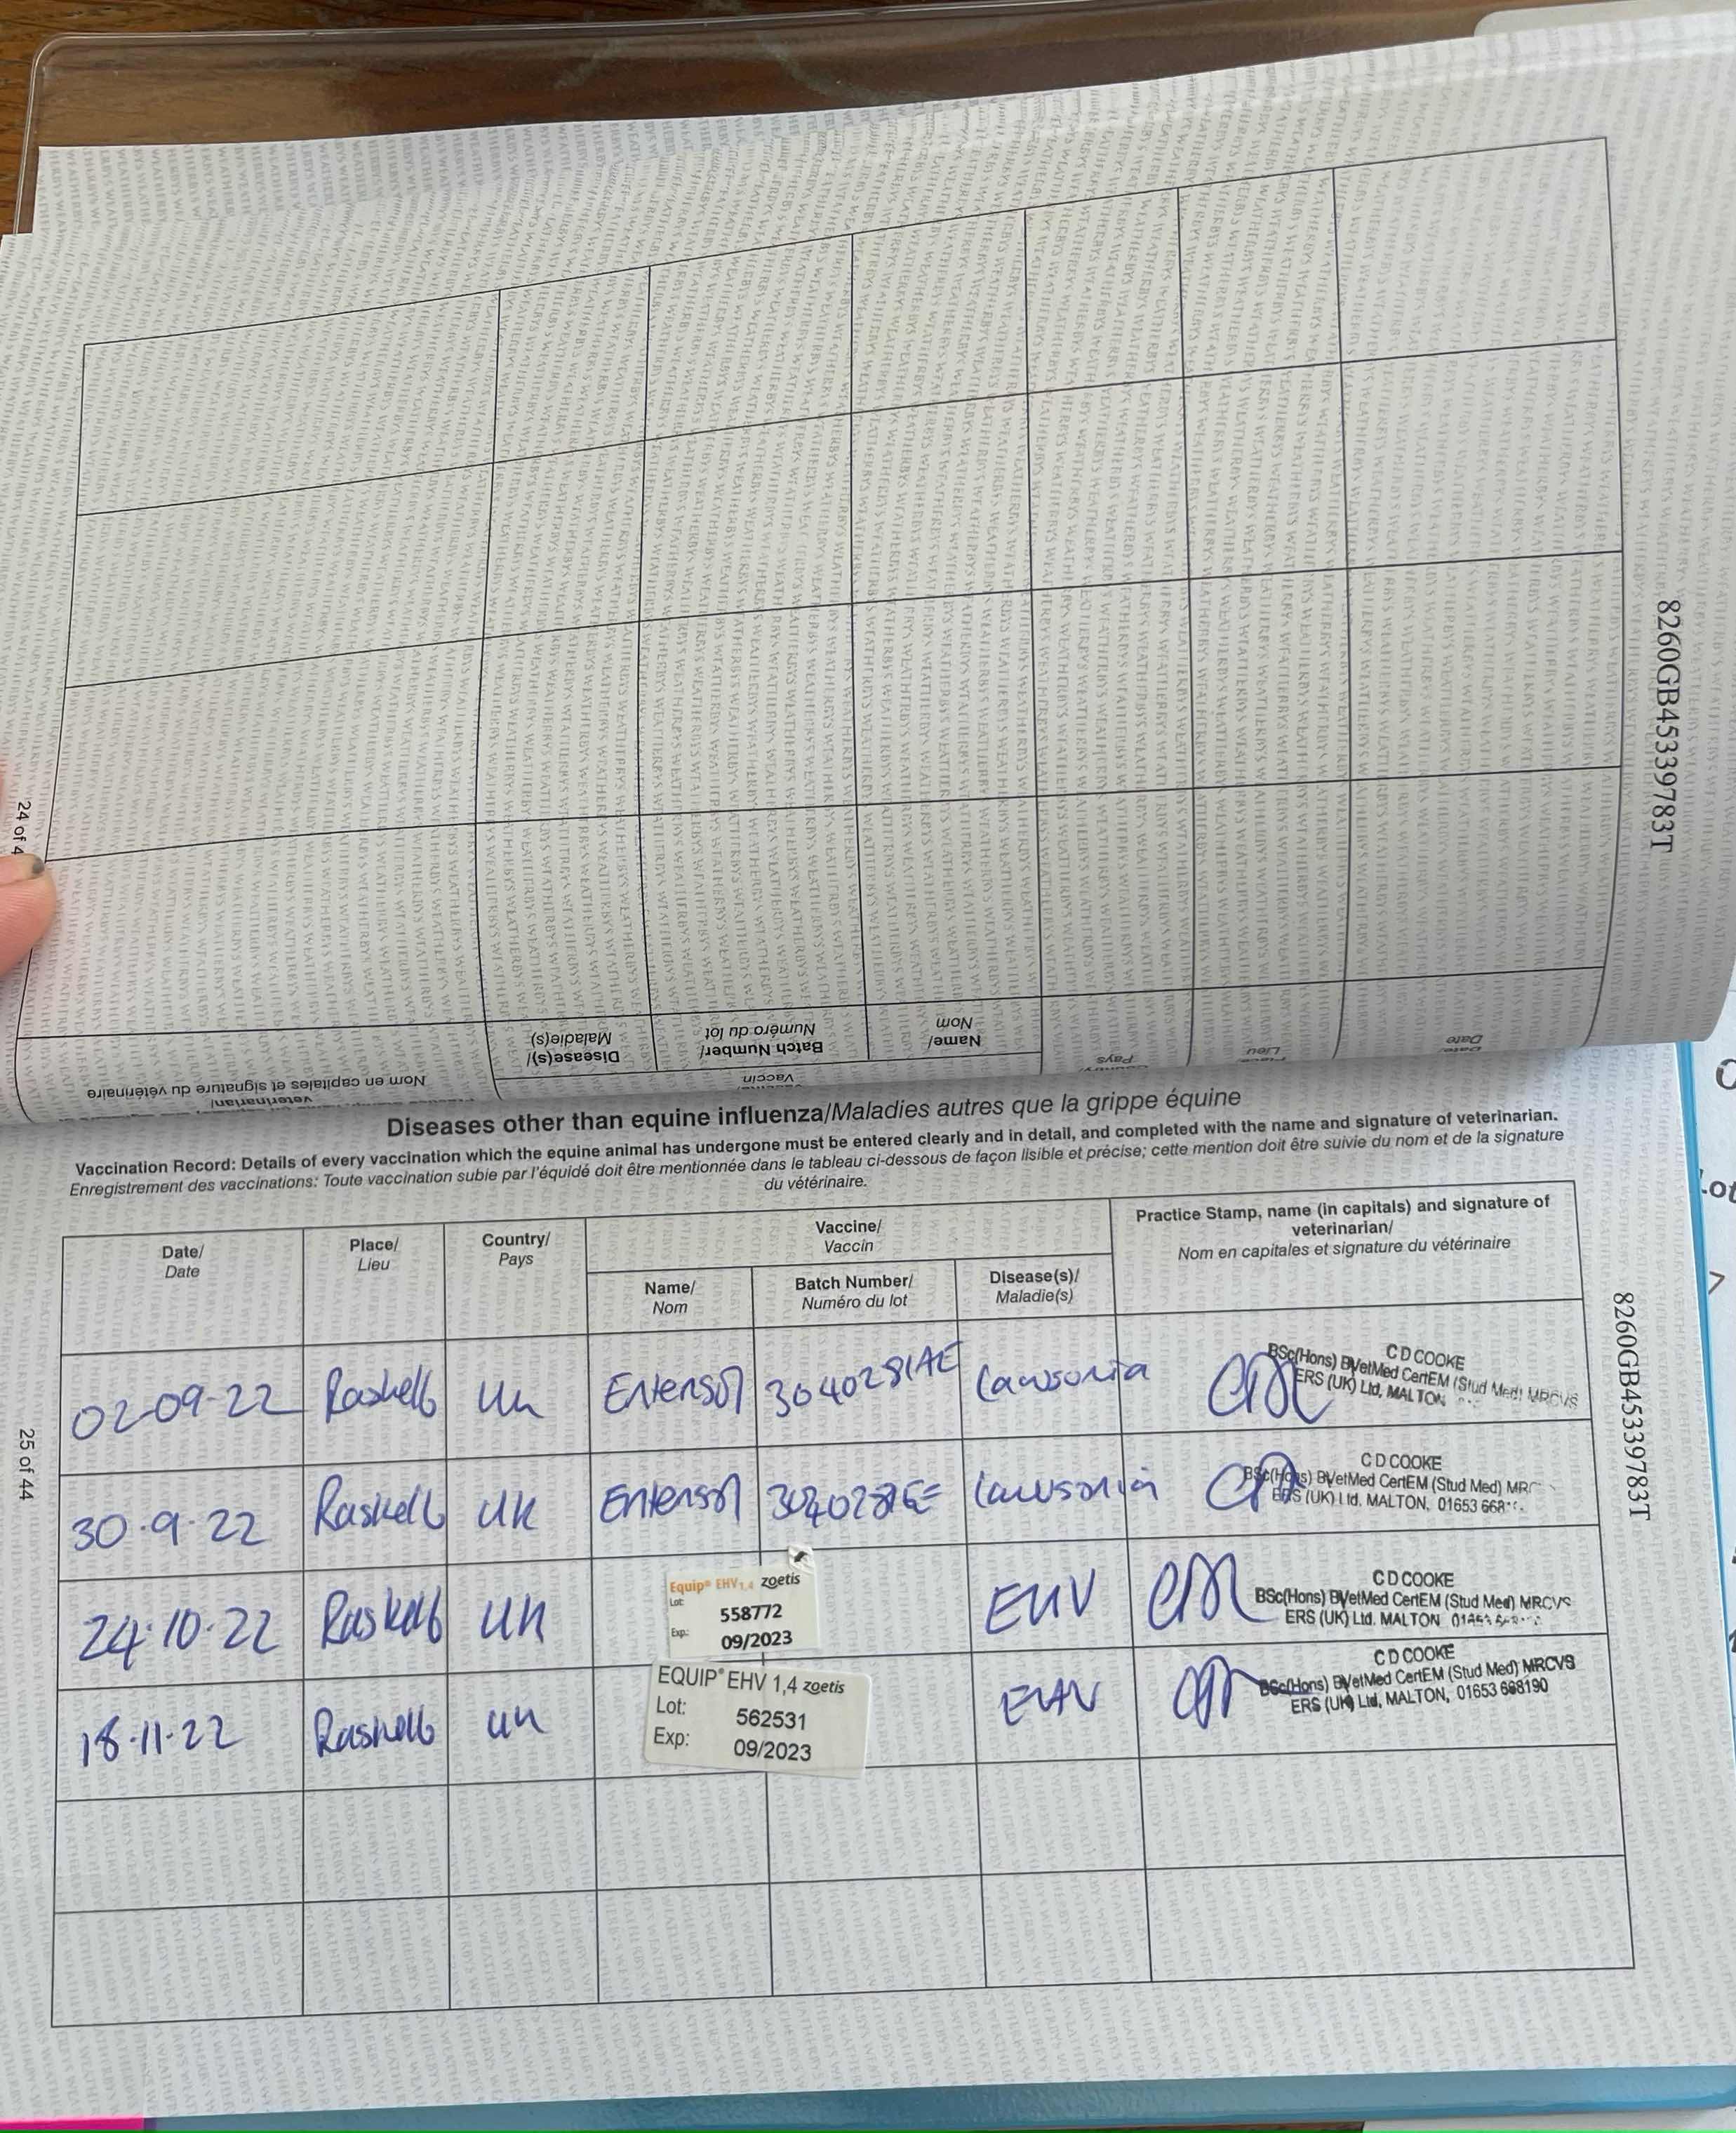 8260GB45339783T
24 of 4
Date
Lieu
Pays
Vaccin
Name/
Nom
Batch Number/
Numéro du lot
Disease(s)/
Maladie(s)
veterinarian/
Nom en capitales et signature du vétérinaire
Diseases other than equine influenza/Maladies autres que la grippe équine
Vaccination Record: Details of every vaccination which the equine animal has undergone must be entered clearly and in detail, and completed with the name and signature of veterinarian.
Enregistrement des vaccinations: Toute vaccination subie par l'équidé doit être mentionnée dans le tableau ci-dessous de façon lisible et précise; cette mention doit être suivie du nom et de la signature
du vétérinaire.
Date/
Date
Place/
Lieu
Country/
Pays
Vaccine/
Vaccin
Name/
Nom
Batch Number/
Numéro du lot
Disease(s)/
Maladie(s)
Practice Stamp, name (in capitals) and signature of
veterinarian/
Nom en capitales et signature du vétérinaire
02-09-22 Raskelf UK Enterisol 3040281AE Lawsonia
C D COOKE
BSc(Hons) BVetMed CertEM (Stud Med) MRCVS
ERS (UK) Ltd, MALTON
30.9.22 Raskelf UK Enterisol Lawsonia
C D COOKE
BSc(Hons) BVetMed CertEM (Stud Med)
ERS (UK) Ltd. MALTON, 01653
24.10.22 Raskelf UK
Equip® EHV 1,4 zoetis
Lot: 558772
Exp: 09/2023
EHV
C D COOKE
BSc(Hons) BVetMed CertEM (Stud Med) MRCVS
ERS (UK) Ltd. MALTON
18.11.22 Raskelf UK
EQUIP® EHV 1,4 zoetis
Lot: 562531
Exp: 09/2023
EHV
C D COOKE
BSc(Hons) BVetMed CertEM (Stud Med) MRCVS
ERS (UK) Ltd, MALTON, 01653 668190
25 of 44
8260GB45339783T